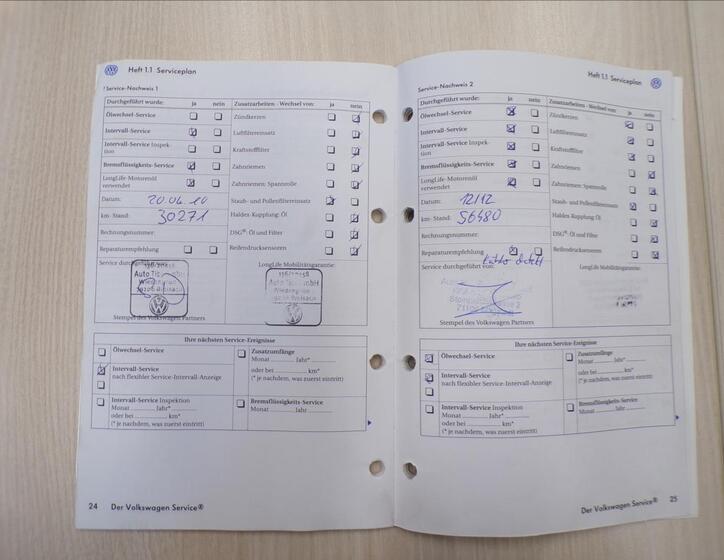 Heft 1.1 Serviceplan
Service-Nachweis 1
Durchgeführt wurde: ja nein
Ölwechsel-Service
Intervall-Service
Intervall-Service Inspek-
tion
Bremsflüssigkeits-Service
LongLife-Motorenöl
verwendet
Datum: 20.04.10
km-Stand: 30271
Rechnungsnummer:
Reparaturempfehlung
Service durchgeführt
Auto
Stempel des Volkswagen Partners
Zusatzarbeiten - Wechsel von: ja nein
Zündkerzen
Luftfiltereinsatz
Kraftstofffilter
Zahnriemen
Zahnriemen; Spannrolle
Staub- und Pollenfiltereinsatz
Haldex-Kupplung: Öl
DSG®: Öl und Filter
Reifendrucksensoren
LongLife Mobilitätsgarantie:
Ihre nächsten Service-Ereignisse
Ölwechsel-Service
Intervall-Service
nach flexibler Service-Intervall-Anzeige
Intervall-Service Inspektion
Monat Jahr*
oder bei km*
(* je nachdem, was zuerst eintritt)
Zusatzumfänge
Monat Jahr*
oder bei km*
(* je nachdem, was zuerst eintritt)
Bremsflüssigkeits-Service
Monat Jahr
24 Der Volkswagen Service®
Heft 1.1 Serviceplan
Service-Nachweis 2
Durchgeführt wurde: ja nein
Ölwechsel-Service
Intervall-Service
Intervall-Service Inspek-
tion
Bremsflüssigkeits-Service
LongLife-Motorenöl
verwendet
Datum: 12/12
km-Stand: 56480
Rechnungsnummer:
Reparaturempfehlung
Service durchgeführt von:
Stempel des Volkswagen Partners
Zusatzarbeiten - Wechsel von: ja nein
Zündkerzen
Luftfiltereinsatz
Kraftstofffilter
Zahnriemen
Zahnriemen; Spannrolle
Staub- und Pollenfiltereinsatz
Haldex-Kupplung: Öl
DSG®: Öl und Filter
Reifendrucksensoren
LongLife Mobilitätsgarantie:
Ihre nächsten Service-Ereignisse
Ölwechsel-Service
Intervall-Service
nach flexibler Service-Intervall-Anzeige
Intervall-Service Inspektion
Monat Jahr*
oder bei km*
(* je nachdem, was zuerst eintritt)
Zusatzumfänge
Monat Jahr*
oder bei km*
(* je nachdem, was zuerst eintritt)
Bremsflüssigkeits-Service
Monat Jahr
Der Volkswagen Service® 25